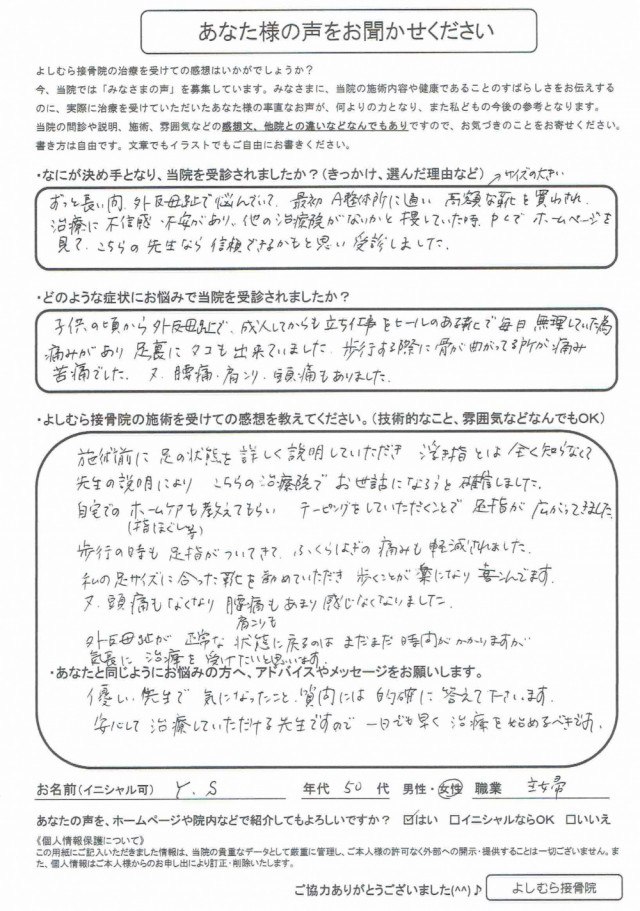 あなた様の声をお聞かせください
よしむら接骨院の治療を受けての感想はいかがでしょうか？
今、当院では「みなさまの声」を募集しています。みなさまに、当院の施術内容や健康であることのすばらしさをお伝えする
のに、実際に治療を受けていただいたあなた様の率直なお声が、何よりの力となり、また私どもの今後の参考となります。
当院の問診や説明、施術、雰囲気などの感想文、他院との違いなどなんでもありですので、お気づきのことをお寄せください。
書き方は自由です。文章でもイラストでもご自由にお書きください。
・なにが決め手となり、当院を受診されましたか？（きっかけ、選んだ理由など）
サイズの大きい
ずっと長い間、外反母趾で悩んでいて、最初 A整体所に通い 高額な靴を買わされ、
治療に不信感・不安があり、他の治療院がないかと捜していた時、PCでホームページを
見て、こちらの先生なら信頼できるかもと思い受診しました。
・どのような症状にお悩みで当院を受診されましたか？
子供の頃から外反母趾で、成人してからも立ち仕事をヒールのある靴で毎日無理していた為
痛みがあり足裏にタコも出来ていました。歩行する際に骨が曲がってる所が痛み
苦痛でした。又、腰痛・肩こり・頭痛もありました。
・よしむら接骨院の施術を受けての感想を教えてください。（技術的なこと、雰囲気などなんでもOK）
施術前に足の状態を詳しく説明していただき 浮き指とは全く知らなくて
先生の説明により こちらの治療院でお世話になろうと確信しました。
自宅でのホームケアも教えてもらい テーピングをしていただくことで足指が広がってきました。
(指ほぐし等)
歩行の時も足指がついてきて、ふくらはぎの痛みも軽減されました。
私の足サイズに合った靴を勧めていただき 歩くことが楽になり 喜んでます。
又、頭痛もなくなり 腰痛もあまり感じなくなりました。
肩こりも
外反母趾が正常な状態に戻るのはまだまだ時間がかかりますが
気長に治療を受けたいと思います。
・あなたと同じようにお悩みの方へ、アドバイスやメッセージをお願いします。
優しい先生で 気になったこと、質問には的確に答えて下さいます。
安心して治療していただける先生ですので 一日でも早く治療を始めるべきです。
お名前（イニシャル可） Y.S 年代 50 代 男性・女性 職業 主婦
あなたの声を、ホームページや院内などで紹介してもよろしいですか？ ☑はい □イニシャルならOK □いいえ
《個人情報保護について》
この用紙にご記入いただきました情報は、当院の貴重なデータとして厳重に管理し、ご本人様の許可なく外部への開示・提供することは一切ございません。ま
た、個人情報はご本人様からのお申し出により訂正・削除いたします。
ご協力ありがとうございました(^^)♪ よしむら接骨院